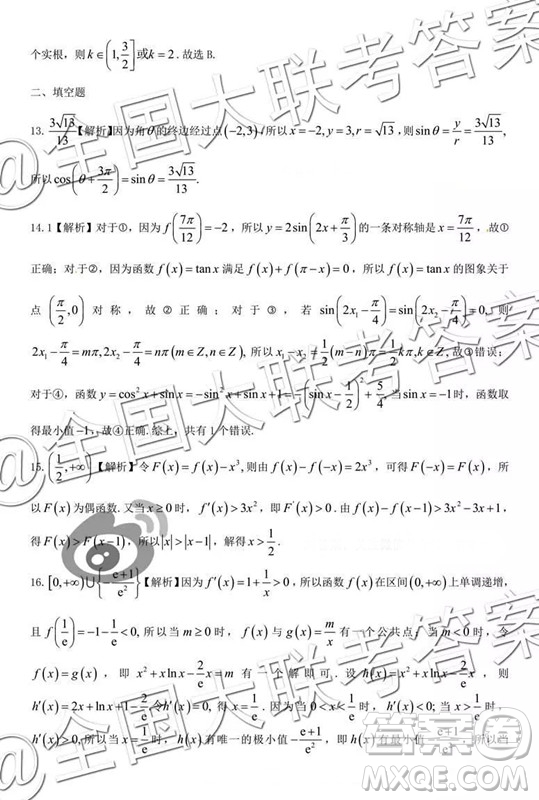 个实根，则 k∈(1, 3/2] 或 k=2 .故选 B.
二、填空题
13. 3√13/13【解析】因为角 θ 的终边经过点 (−2,3)，所以 x=−2, y=3, r=√13，则 sinθ = y/r = 3√13/13,
所以 cos(θ+3π/2)=sinθ=3√13/13.
14.1【解析】对于①，因为 f(7π/12)=−2，所以 y=2sin(2x+π/3) 的一条对称轴是 x=7π/12，故①
正确；对于②，因为函数 f(x)=tanx 满足 f(x)+f(π−x)=0，所以 f(x)=tanx 的图象关于
点 (π/2,0) 对称，故②正确；对于③，若 sin(2x₁−π/4)=sin(2x₂−π/4)=0，则
2x₁−π/4=mπ, 2x₂−π/4=nπ(m∈Z,n∈Z)，所以 x₁−x₂=1/2(m−n)π=1/2kπ, k∈Z. 故③错误；
对于④，函数 y=cos²x+sinx=−sin²x+sinx+1=−(sinx−1/2)²+5/4，当 sinx=−1时，函数取
得最小值−1，故④正确.综上，共有1个错误.
15. (1/2,+∞)【解析】令 F(x)=f(x)−x³,则由 f(x)−f(−x)=2x³，可得 F(−x)=F(x)，所
以 F(x) 为偶函数.又当 x≥0 时，f′(x)>3x²，即 F′(x)>0.由 f(x)−f(x−1)>3x²−3x+1,
得 F(x)>F(x−1)，所以|x|>|x−1|，解得 x>1/2.
16. [0,+∞)∪{−(e+1)/e²}【解析】因为 f′(x)=1+1/x>0，所以 f(x)在区间(0,+∞)上单调递增,
且 f(1/e)=−1−1/e<0，所以当 m≥0 时，f(x) 与 g(x)=m/x 有一个公共点；当 m<0 时，令
f(x)=g(x)，即 x²+xlnx−2/e x=m 有一个解即可.设 h(x)=x²+xlnx−2/e x，则
h′(x)=2x+lnx+1−2/e=0，得 x=1/e.因为当 0<x<1/e 时，h′(x)<0；当 x>1/e 时，
h′(x)>0，所以当 x=1/e 时，h(x)有唯一的极小值−(e+1)/e²，即 h(x)有最小值−(e+1)/e²，
@全国大联考答案
答案圈
MXQE.COM